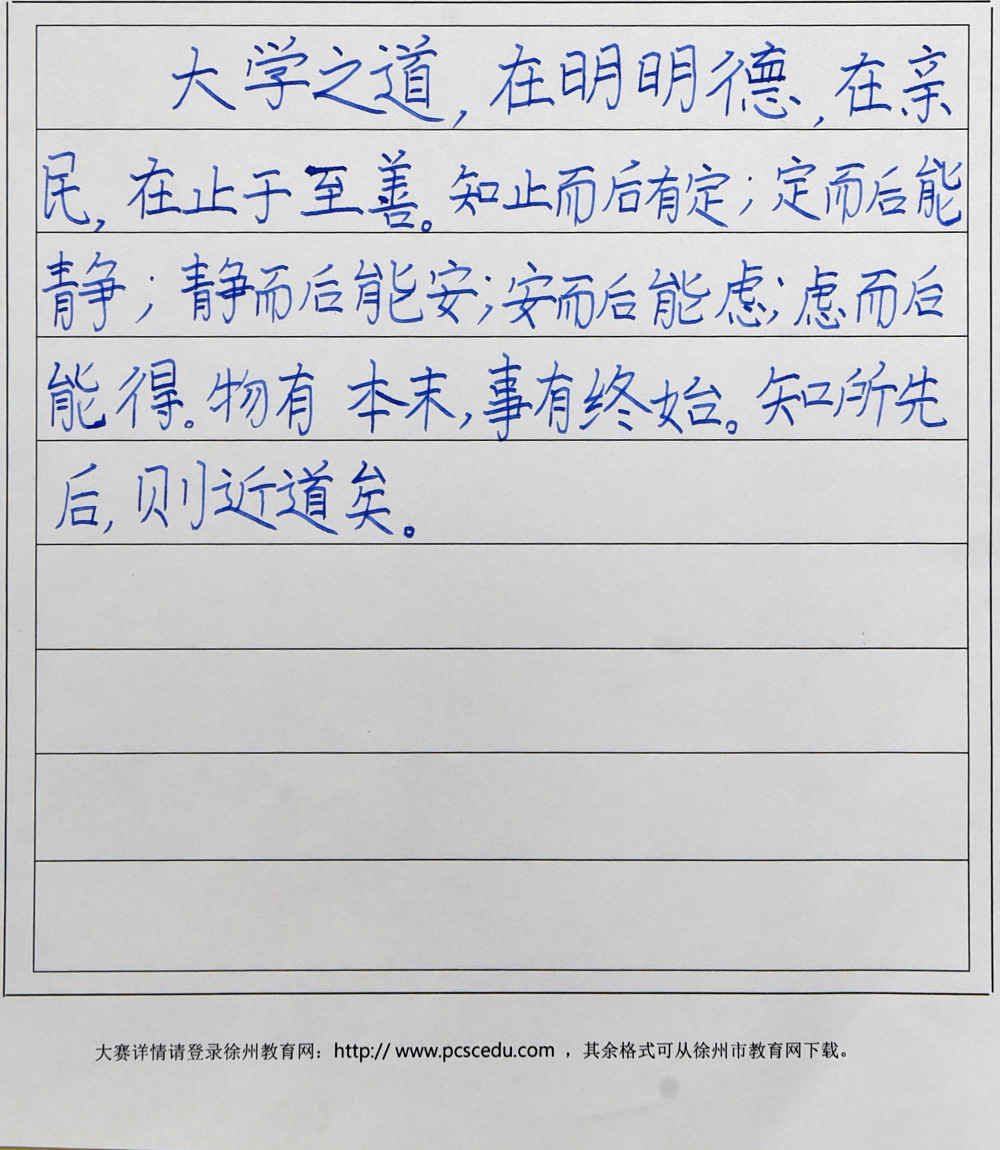 大学之道,在明明德,在亲
民,在止于至善。知止而后有定;定而后能
静;静而后能安;安而后能虑;虑而后
能得。物有本末,事有终始。知所先
后,则近道矣。
大赛详情请登录徐州教育网：http:// www.pcscedu.com ，其余格式可从徐州市教育网下载。